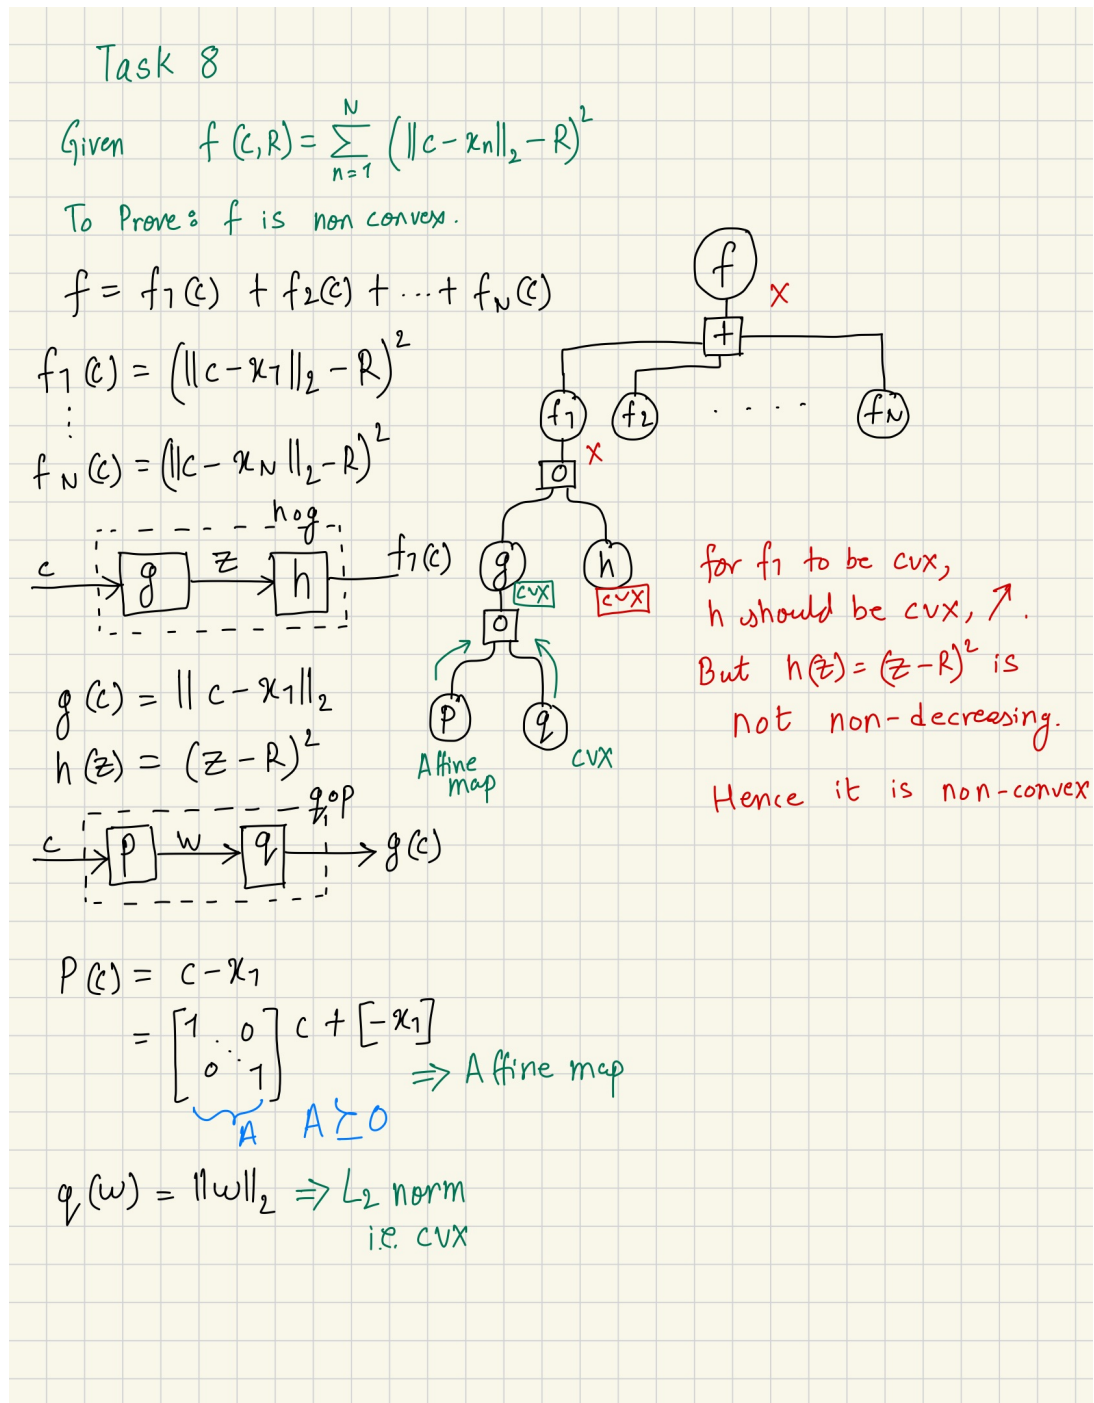 Task 8
Given f(c,R) = \sum_{n=1}^{N} (||c-x_n||_2 - R)^2
To Prove: f is non convex.
f = f_1(c) + f_2(c) + ... + f_N(c)
f_1(c) = (||c-x_1||_2 - R)^2
⋮
f_N(c) = (||c-x_N||_2 - R)^2
hog
c g z h f_1(c)
g(c) = ||c-x_1||_2
h(z) = (z-R)^2
qop
c p w q g(c)
P(c) = c-x_1
= [1 ⋱ 0 0 1] c + [-x_1]
⇒ Affine map
A A ⪰ 0
q(w) = ||w||_2 ⇒ L_2 norm
i.e. cvx
f
x
+
f_1 f_2 . . . . f_N
x
o
g h
cvx cvx
o
p q
Affine map cvx
for f_1 to be cvx,
h should be cvx, ↗.
But h(z) = (z-R)^2 is
not non-decreasing.
Hence it is non-convex